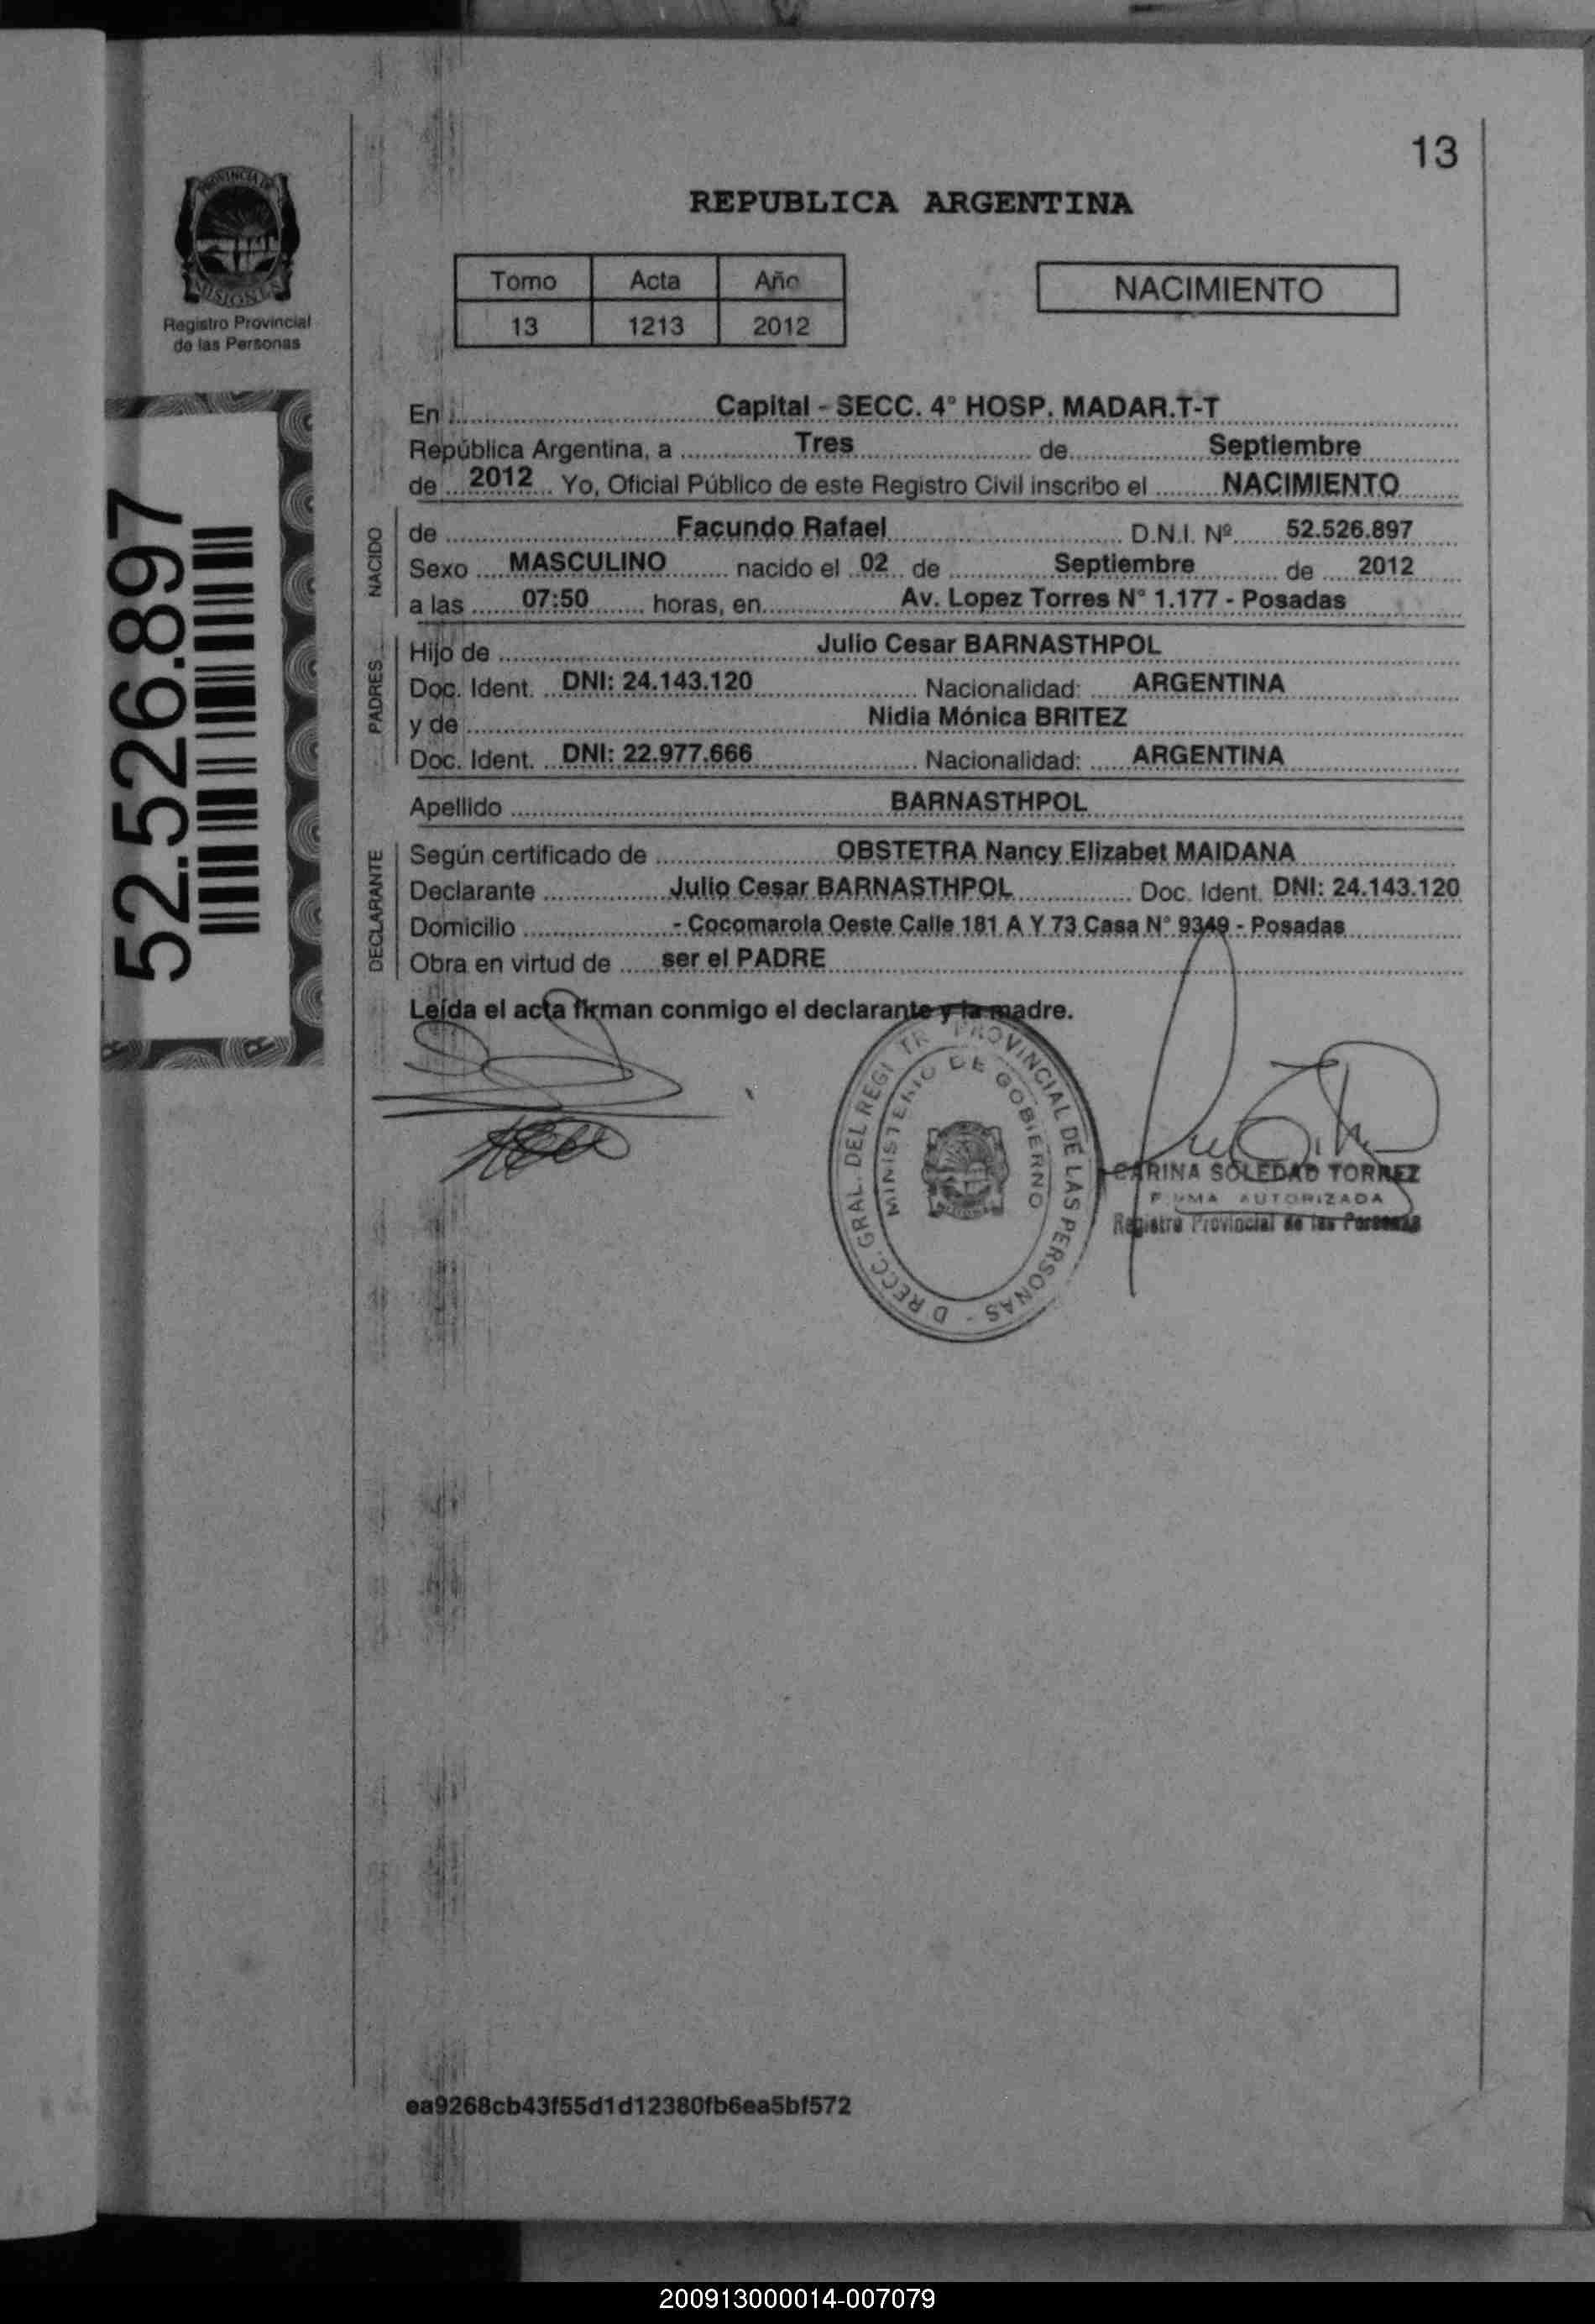 13
PROVINCIA DE
MISIONES
Registro Provincial
de las Personas
REPUBLICA ARGENTINA
Tomo Acta Año
13 1213 2012
NACIMIENTO
52.526.897
En Capital - SECC. 4° HOSP. MADAR.T-T
República Argentina, a Tres de Septiembre
de 2012 Yo, Oficial Público de este Registro Civil inscribo el NACIMIENTO
NACIDO
de Facundo Rafael D.N.I. Nº 52.526.897
Sexo MASCULINO nacido el 02 de Septiembre de 2012
a las 07:50 horas, en Av. Lopez Torres N° 1.177 - Posadas
PADRES
Hijo de Julio Cesar BARNASTHPOL
Doc. Ident. DNI: 24.143.120 Nacionalidad: ARGENTINA
y de Nidia Mónica BRITEZ
Doc. Ident. DNI: 22.977.666 Nacionalidad: ARGENTINA
Apellido BARNASTHPOL
DECLARANTE
Según certificado de OBSTETRA Nancy Elizabet MAIDANA
Declarante Julio Cesar BARNASTHPOL Doc. Ident. DNI: 24.143.120
Domicilio - Cocomarola Oeste Calle 181 A Y 73 Casa N° 9349 - Posadas
Obra en virtud de ser el PADRE
Leída el acta firman conmigo el declarante y la madre.
D RECC. GRAL. DEL REGI TR PROVINCIAL DE LAS PERSONAS -
MINISTERIO DE GOBIERNO
CARINA SOLEDAD TORREZ
FIRMA AUTORIZADA
Registro Provincial de las Personas
ea9268cb43f55d1d12380fb6ea5bf572
200913000014-007079